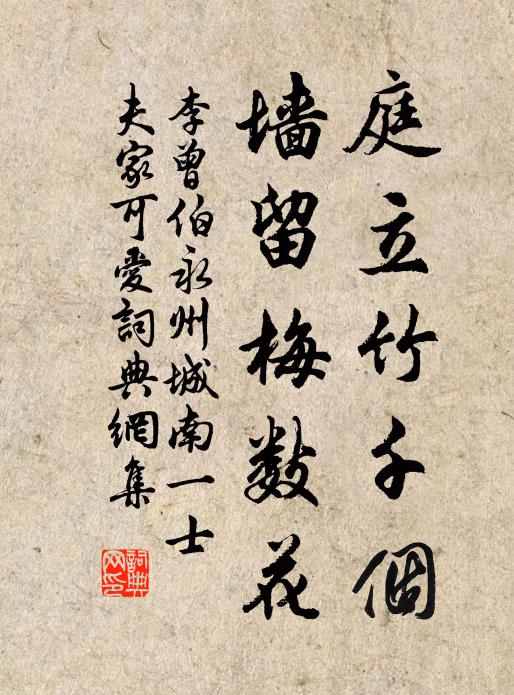 庭立竹千個
墙留梅数花
李曾伯永州城南一士
夫家可愛詞典網集
詞典
网印